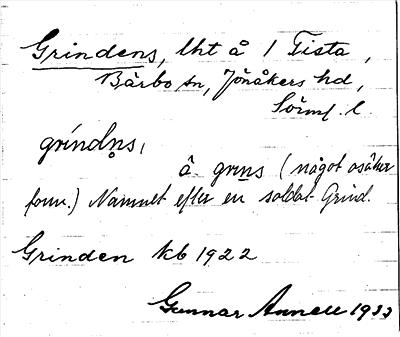 Grindens, lht å 1 Tista,
Bärbo sn, Jönåkers hd,
Södml. l.
gríndn̥s,
â grins (något osäker
form.) Namnet efter en soldat Grind.
Grinden kb 1922
Gunnar Annell 1933